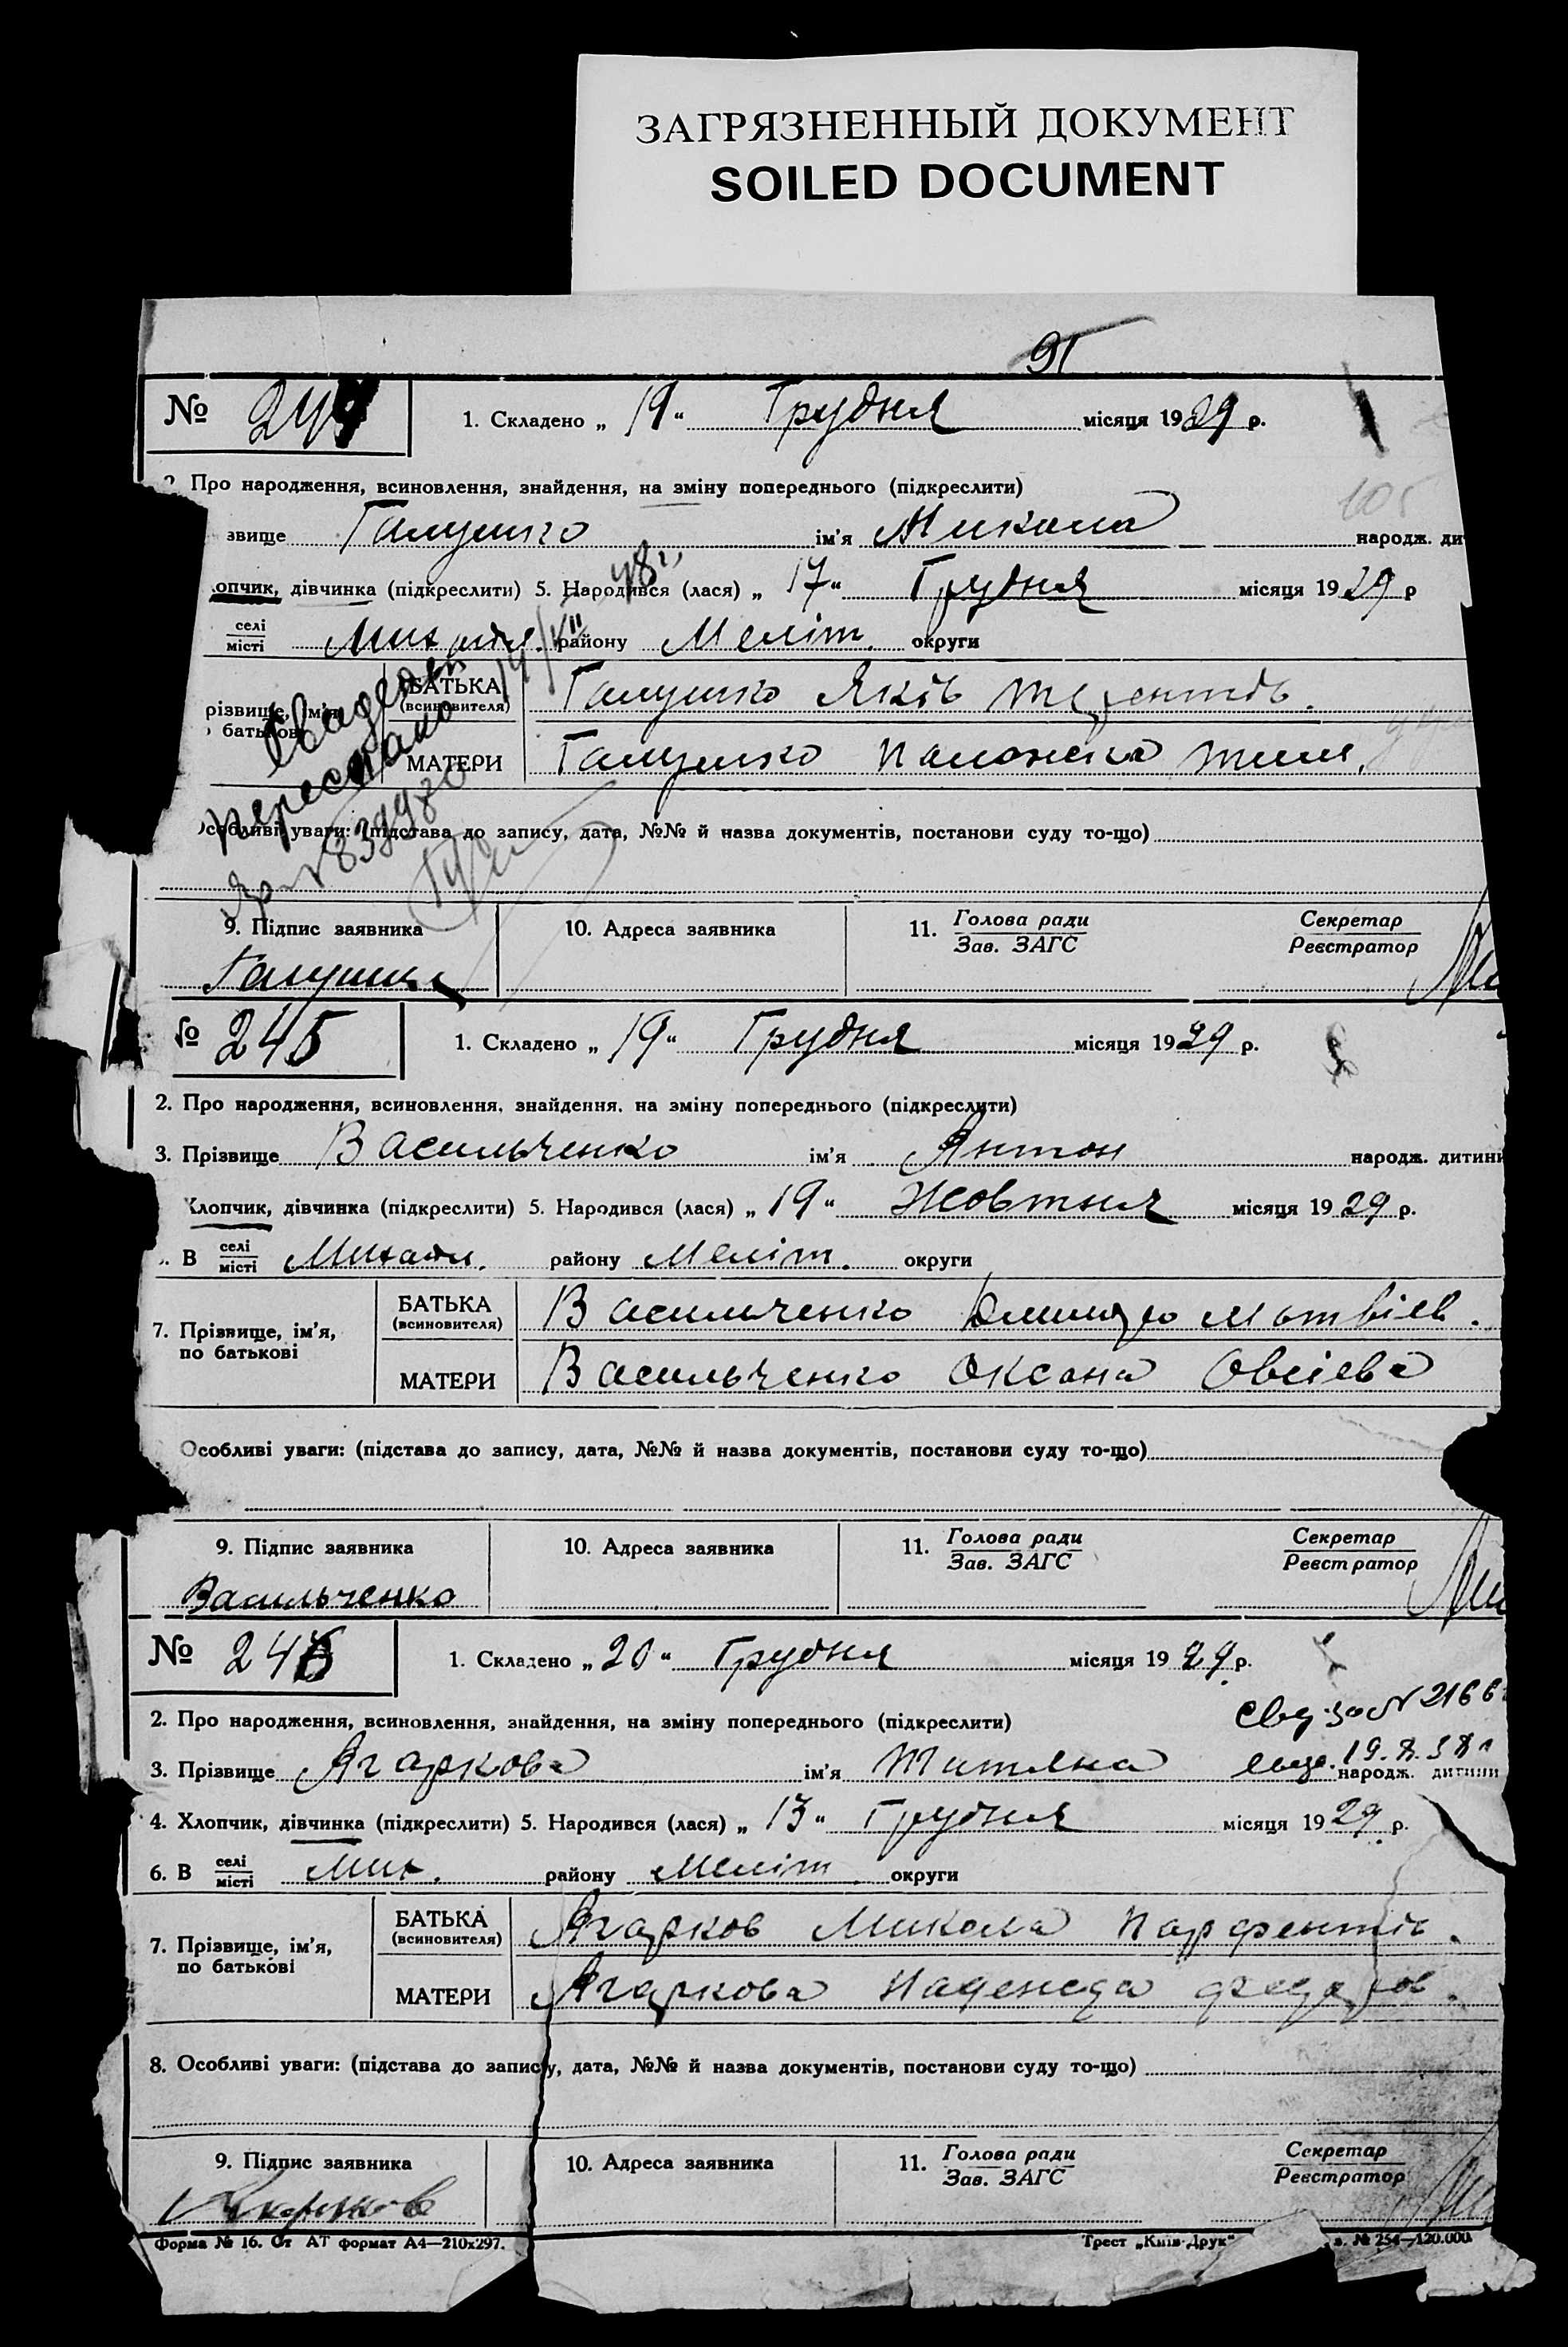 ЗАГРЯЗНЕННЫЙ ДОКУМЕНТ
SOILED DOCUMENT
91
№ 244 1. Складено „ 19 “ Грудня місяця 1929 р.
2. Про народження, всиновлення, знайдення, на зміну попереднього (підкреслити)
звище Галушко ім'я Микола народж. ди
опчик, дівчинка (підкреслити) 5. Народився (лася) „ 17 “ Грудня місяця 1929 р
селі
місті району Меліт. округи
різвище, ім'я
батькові
БАТЬКА Галушко Яків
(всиновителя)
МАТЕРИ Галушко
Особливі уваги: (підстава до запису, дата, №№ й назва документів, постанови суду то-що)
9. Підпис заявника 10. Адреса заявника 11. Голова ради Секретар
Зав. ЗАГС Реєстратор
№ 245 1. Складено „ 19 “ Грудня місяця 1929 р.
2. Про народження, всиновлення, знайдення, на зміну попереднього (підкреслити)
3. Прізвище Васильченко ім'я Антон народж. дитини
Хлопчик, дівчинка (підкреслити) 5. Народився (лася) „ 19 “ Жовтня місяця 1929 р.
В селі Михайл. району Меліт. округи
місті
7. Прізвище, ім'я,
по батькові
БАТЬКА Васильченко Матвіев.
(всиновителя)
МАТЕРИ Васильченко Оксана Овсієва
Особливі уваги: (підстава до запису, дата, №№ й назва документів, постанови суду то-що)
9. Підпис заявника 10. Адреса заявника 11. Голова ради Секретар
Зав. ЗАГС Реєстратор
Васильченко
№ 246 1. Складено „ 20 “ Грудня місяця 1929 р.
2. Про народження, всиновлення, знайдення, на зміну попереднього (підкреслити)
3. Прізвище Агаркова ім'я Титяна народж. дитини
4. Хлопчик, дівчинка (підкреслити) 5. Народився (лася) „ 13 “ Грудня місяця 1929 р.
6. В селі Мих. району Меліт округи
місті
7. Прізвище, ім'я,
по батькові
БАТЬКА Агарков Микола Парфентів.
(всиновителя)
МАТЕРИ Агаркова Надежда Федоров.
8. Особливі уваги: (підстава до запису, дата, №№ й назва документів, постанови суду то-що)
9. Підпис заявника 10. Адреса заявника 11. Голова ради Секретар
Зав. ЗАГС Реєстратор
Форма № 16. Ст АТ формат А4—210х297. Трест „Київ-Друк“ № 254—120.000.